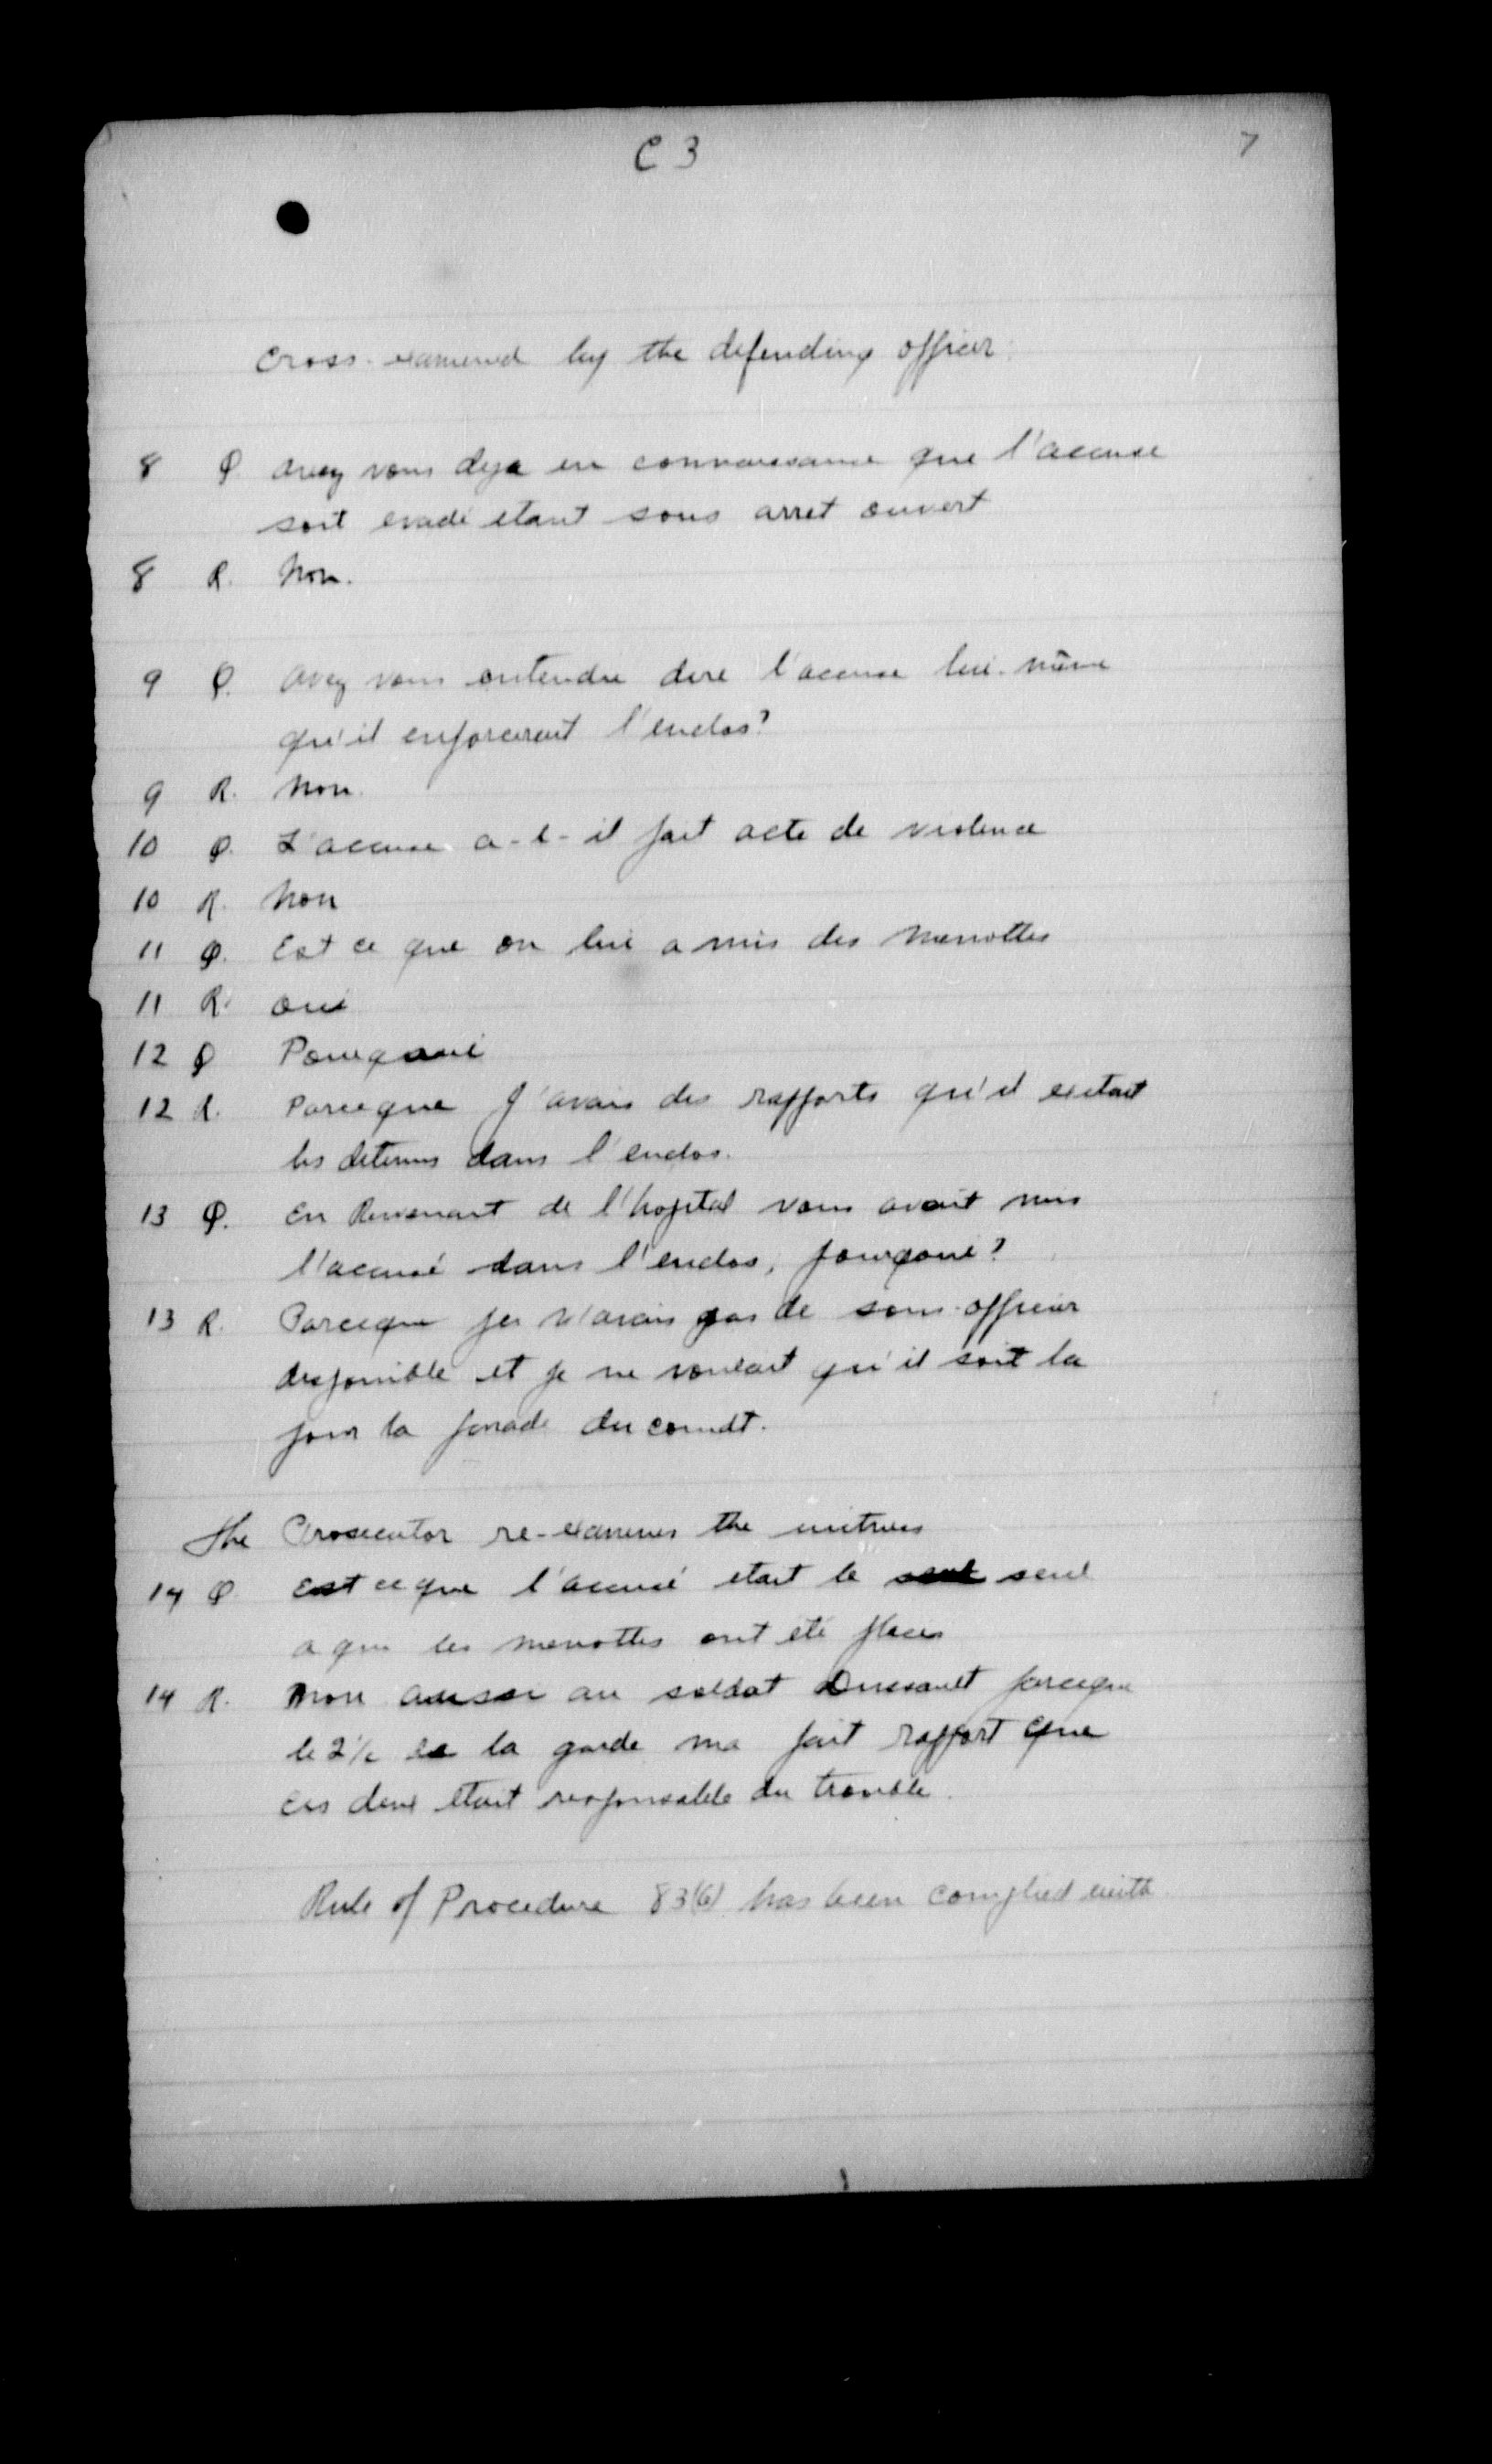 C 3
7
Cross-examined by the defending officer:
8 Q avez vous deja eu connaissance que l'accuse
soit evadé etant sous arret ouvert
8 R. Non.
9 Q. avez vous entendre dire l'accuse lui-même
qu'il enforcerait l'enclos?
9 R. Non.
10 Q. L'accuse a-t-il fait acte de violence
10 R. Non
11 Q. Est ce que on lui a mis des menottes
11 R. oui
12 Q Pourquoi
12 R. Parceque J'avais des rapports qu'il exitait
les detenus dans l'enclos.
13 Q. En Revenant de l'hopital vous avait mis
l'accusé dans l'enclos, pourquoi?
13 R. Parceque je n'avais pas de sous-officier
disponible et je ne voulait qu'il soit la
pour la parade du comdt.
The Prosecutor re-examines the witness
14 Q Est ceque l'accusé etait le seul
a qui les menottes ont été placés
14 R. Non aussi au soldat Dussault parceque
le 2 i/c la garde ma fait rapport que
ces deux était responsable du trouble.
Rule of Procedure 83(b) has been complied with.